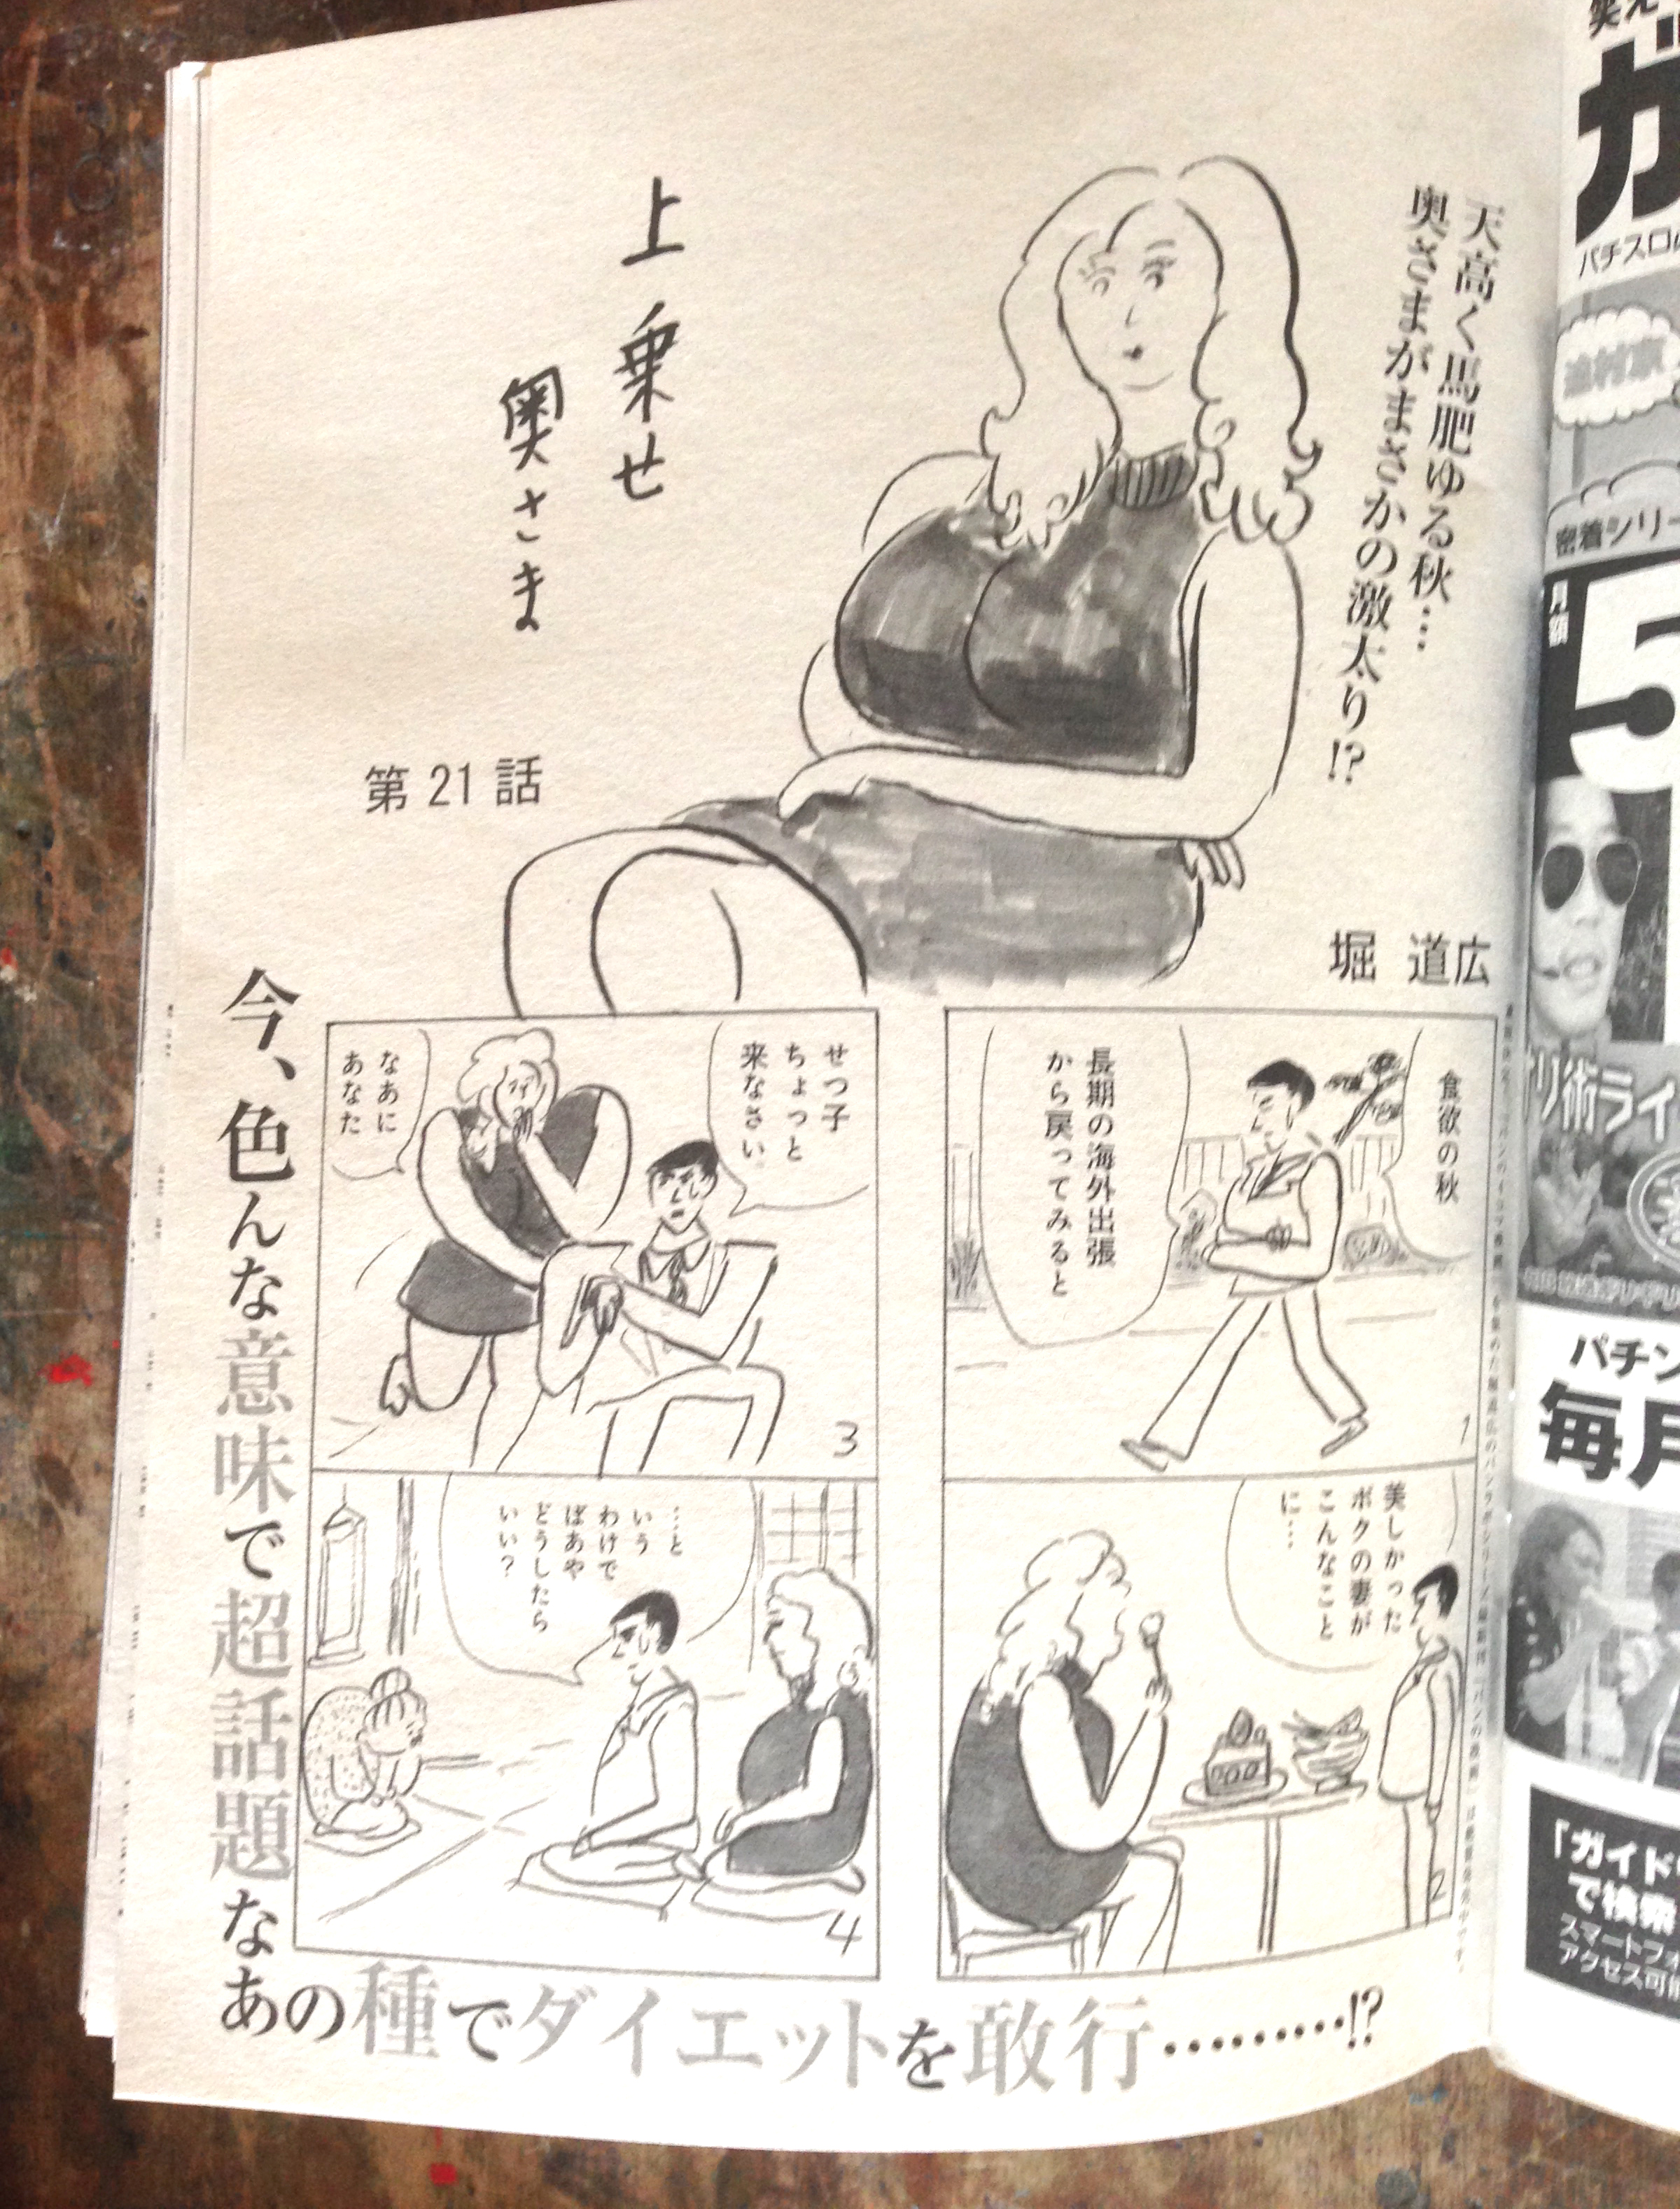 天高く馬肥ゆる秋…
奥さまがまさかの激太り!?
上乗せ
奥さま
第21話
堀 道広
食欲の秋
長期の海外出張
から戻ってみると
1
美しかった
ボクの妻が
こんなこと
に…
2
せつ子
ちょっと
来なさい
なあに
あなた
3
…と
いう
わけで
ばあや
どうしたら
いい?
4
今、色んな意味で超話題な
あの種でダイエットを敢行………!?
ガ
パチスロ
密着シリー
月額
5
リ術ライ
パチン
毎月
「ガイド
で検索
スマートフォ
アクセス可能